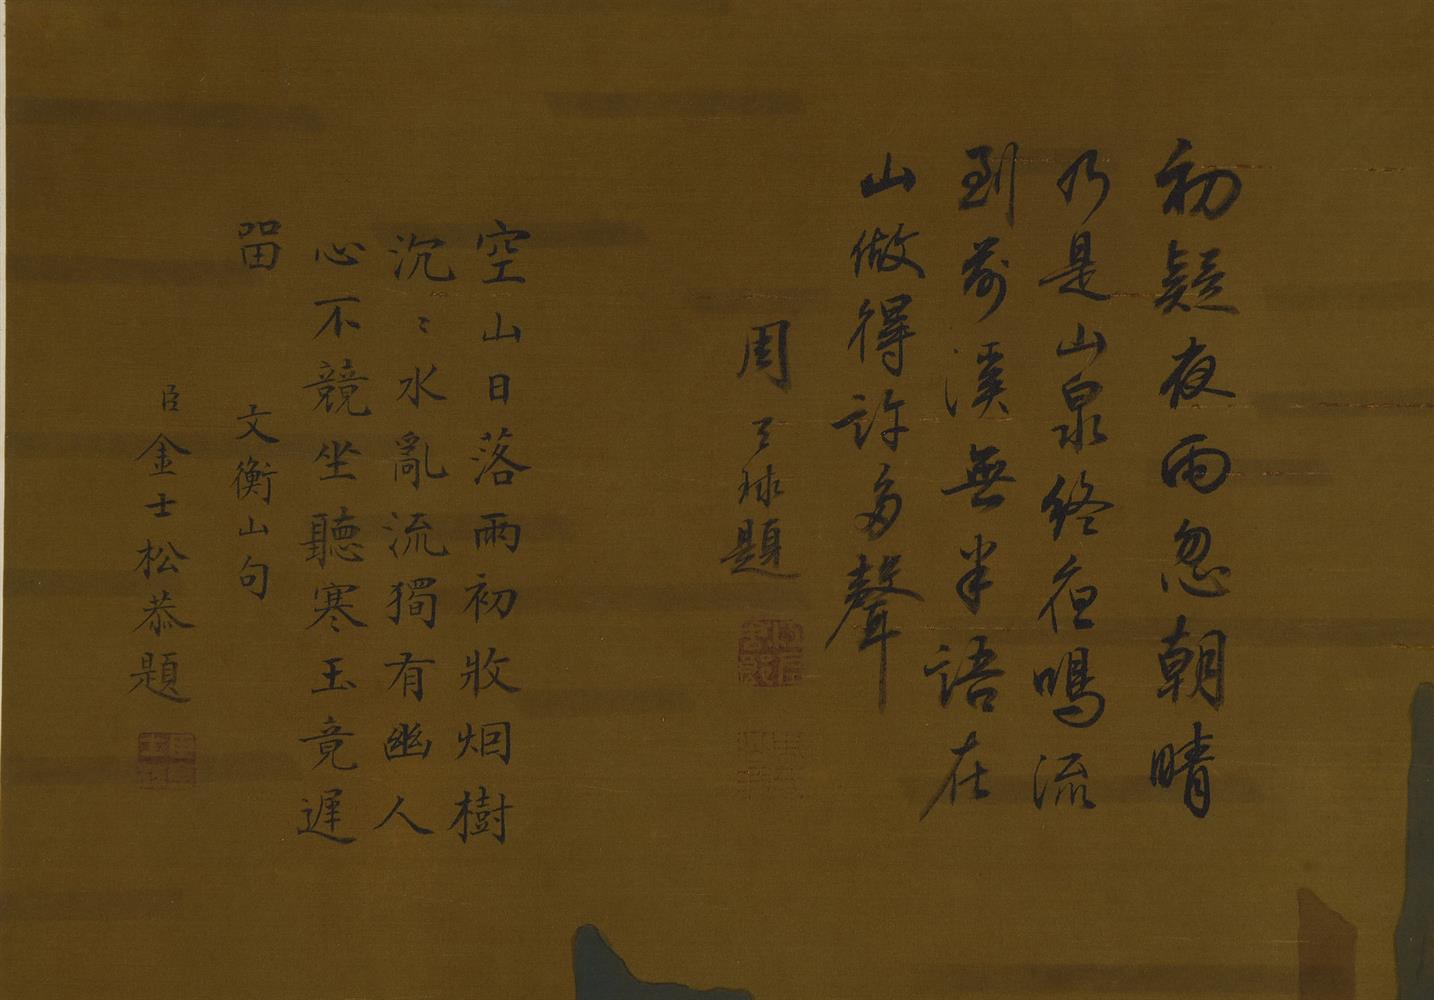 初疑夜雨忽朝晴
乃是山泉終夜鳴流
到前溪無半語在
山做得許多聲
周天球題
空山日落雨初收烟樹
沉〻水亂流獨有幽人
心不競坐聽寒玉竟遲
留
文衡山句
臣金士松恭題